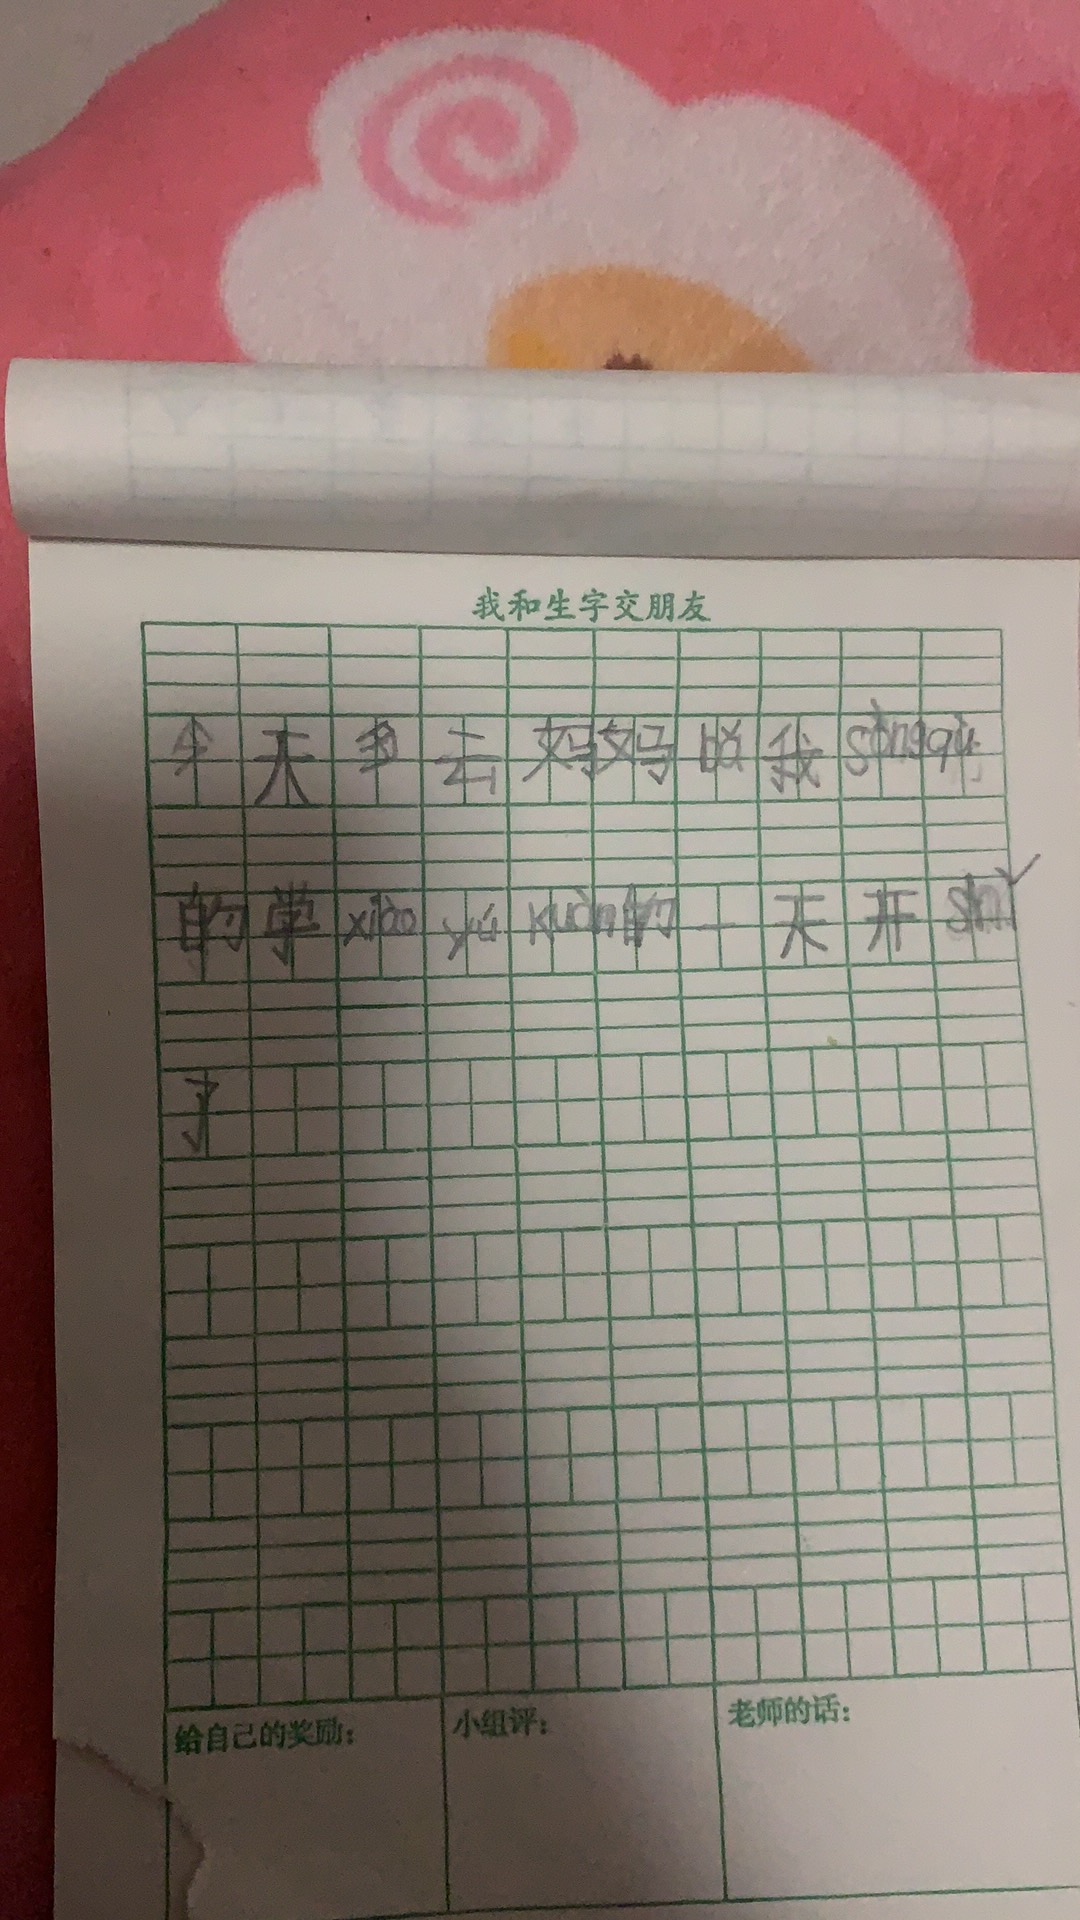 我和生字交朋友
今天 去妈妈说我sòngqù
的学xiào yú kuàn的一天开shǐ
了
给自己的奖励： 小组评： 老师的话：